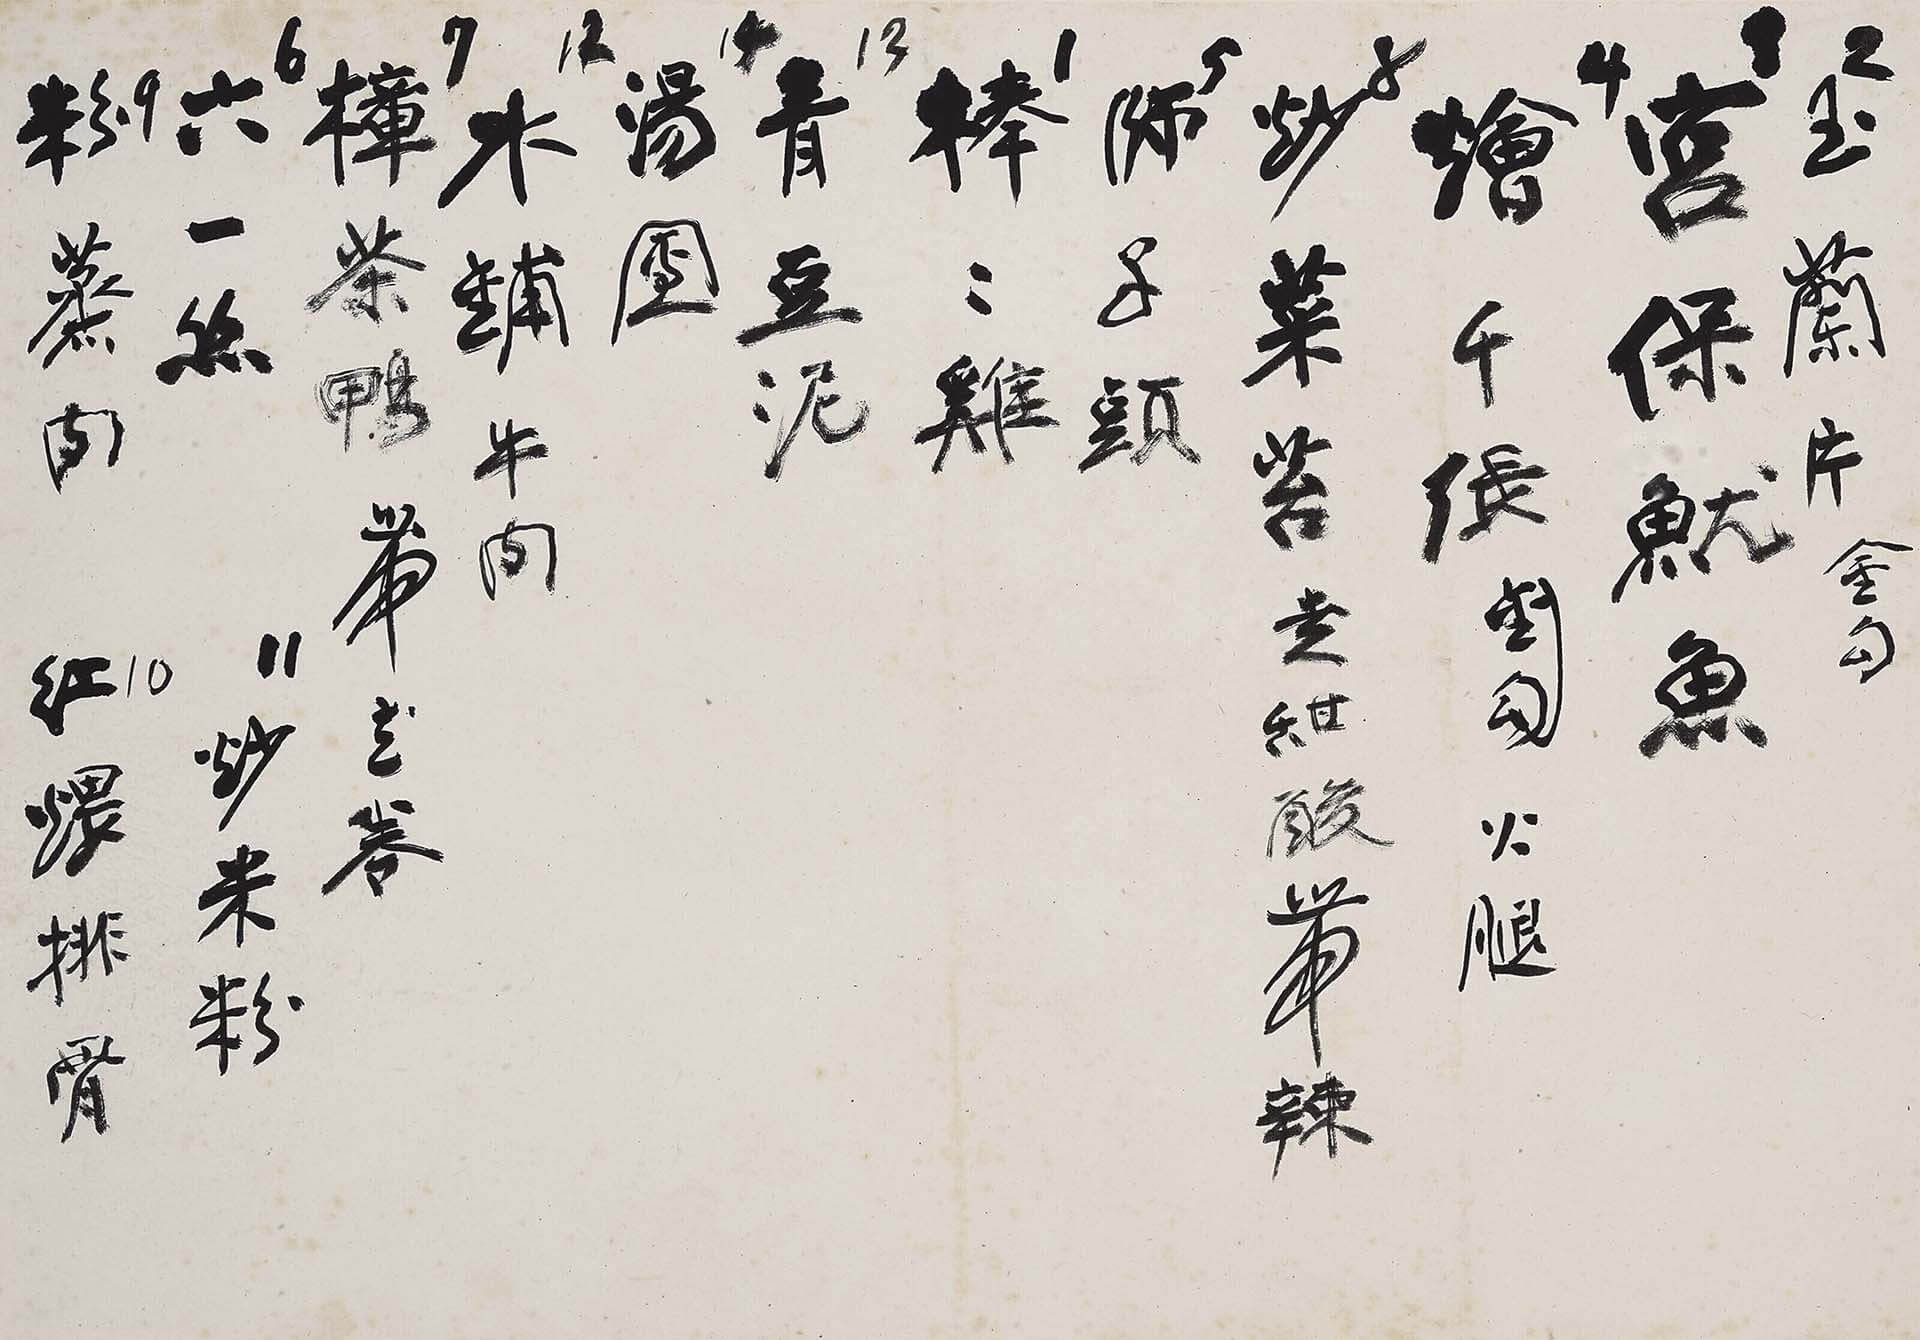 2 玉蘭片 金勾
3 宮保魷魚
4 燴千張 火腿
8 炒菜苔 走甜酸帶辣
5 獅子頭
1 棒〻雞
13 青豆泥
14 湯圓
12 水鋪牛肉
7 樟茶鴨 帶花卷
6 六一絲
11 炒米粉
9 粉蒸肉
10 紅煨排骨